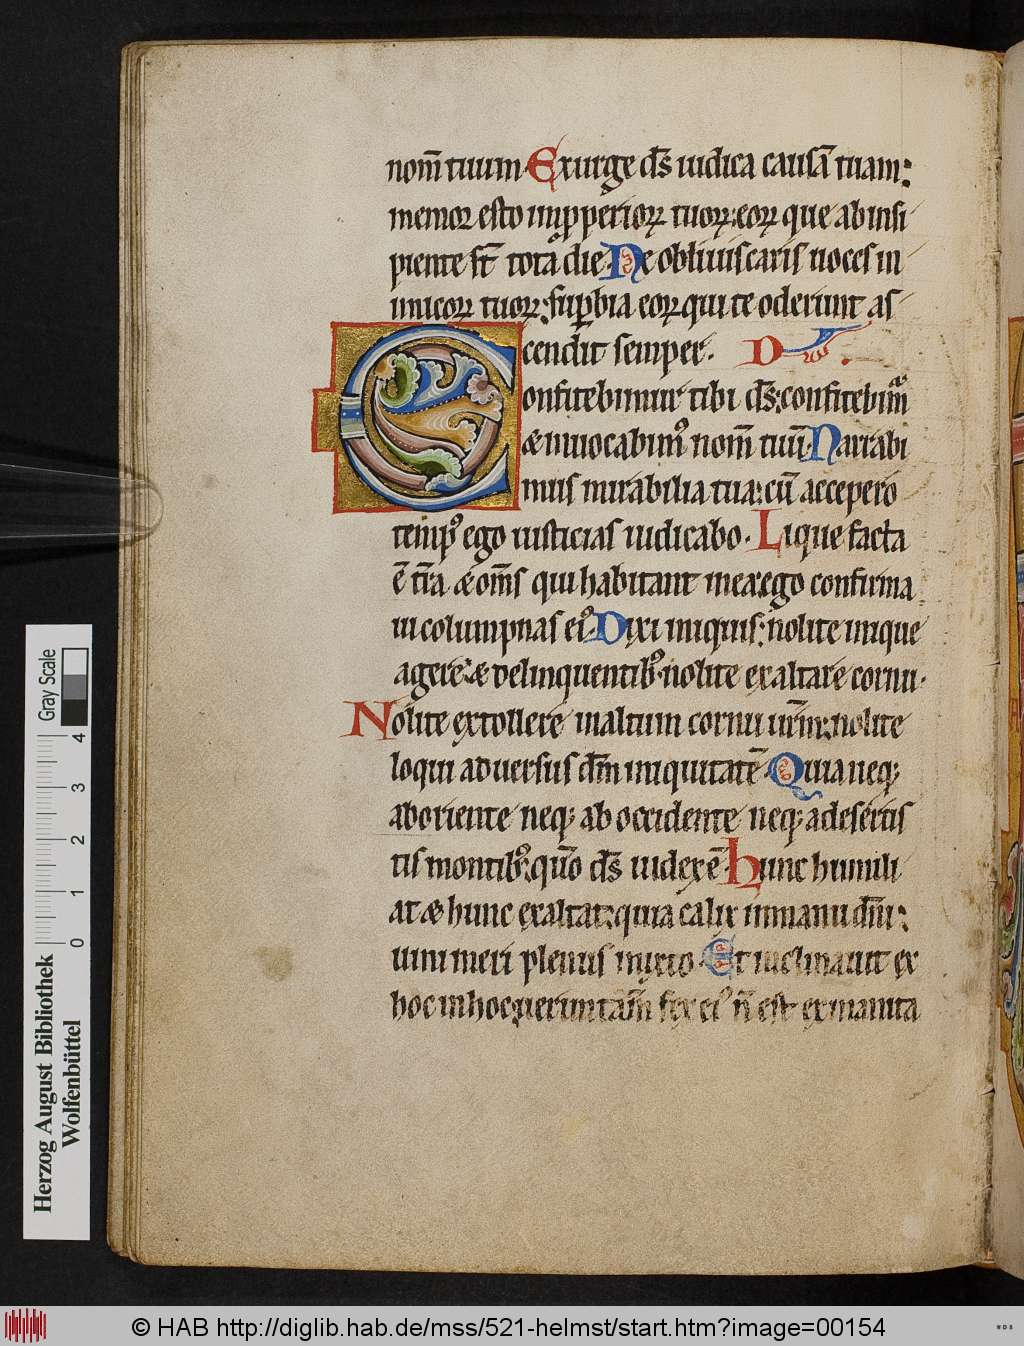 nom̄ tuum. Exurge d̄s iudica causā tuam:
memor esto inpperioꝝ tuoꝝ: eoꝝ que ab insi
piente st̄ tota die. Ne obliuiscaris uoces in
imicoꝝ tuoꝝ: supbia eoꝝ qui te oderunt as
cendit semper. D
Confitebimur tibi d̄s: confitebimᷣ
& inuocabimꝰ nom̄ tuū. Narrabi
mus mirabilia tua: cū accepero
tempꝰ ego iusticias iudicabo. Liquefacta
ē t̄ra & om̄s qui habitant in ea: ego confirma
ui columpnas eiꝰ. Dixi iniquis: nolite inique
agere: & delinquentibꝰ. nolite exaltare cornu.
Nolite extollere in altum cornu ur̄m: nolite
loqui aduersus dm̄ iniquitatē. Quia neqꝫ
ab oriente neqꝫ ab occidente neqꝫ a desertis
tis montibꝰ: quō d̄s iudex ē. hunc humili
at & hunc exaltat: quia calix in manu dn̄i:
uini meri plenus mixto. Et inclinauit ex
hoc in hoc: uerumtam̄ fex eiꝰ n̄ est exinanita
Herzog August Bibliothek
Wolfenbüttel
Gray Scale
0 1 2 3 4
© HAB http://diglib.hab.de/mss/521-helmst/start.htm?image=00154